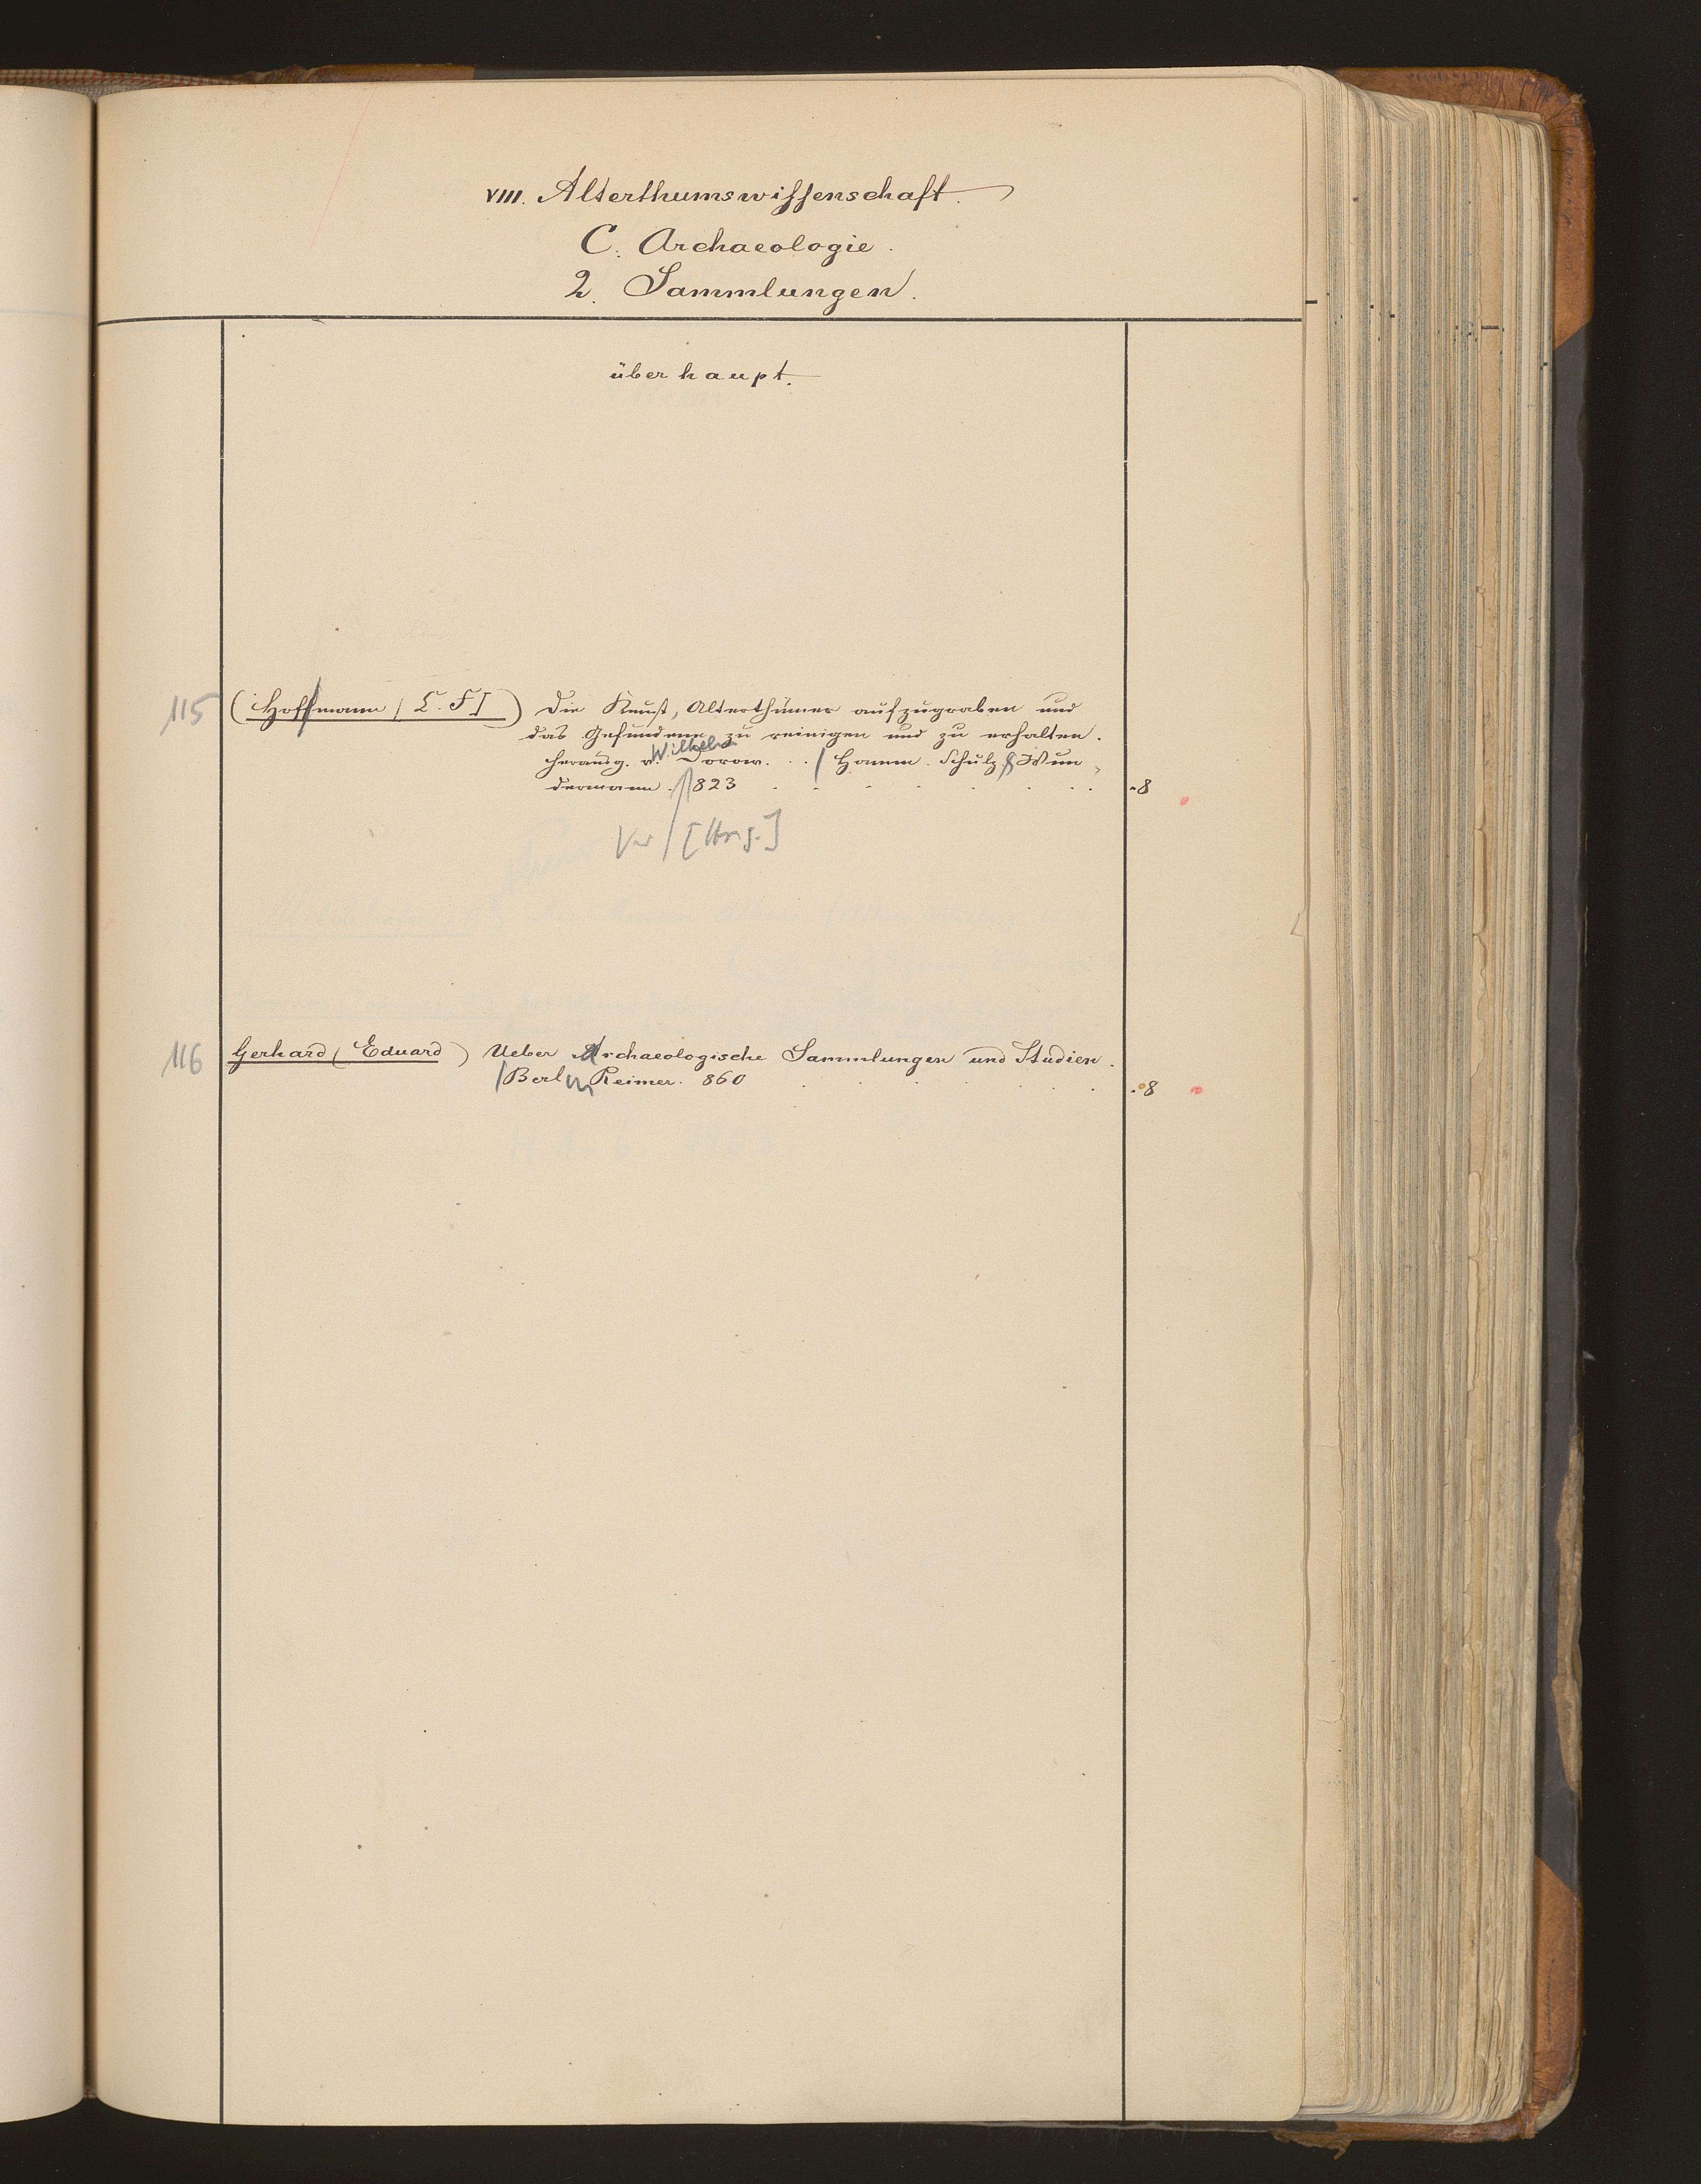 VIII. Alterthumswissenschaft.
C. Archaeologie.
2. Sammlungen.
überhaupt.
115 (Hoffmann / L. F.) Die Kunst, Alterthümer aufzugraben und
das Gefundene zu reinigen und zu erhalten.
Wilhelm
herausg. v. Dorow. . . / Hamm. Schulz & Wun-
dermann. 823 . . . . . . . . 8
[Hrsg.]
116 Gerhard (Eduard) Ueber Archaeologische Sammlungen und Studien.
Berlin Reimer. 860 . . . . . . 8